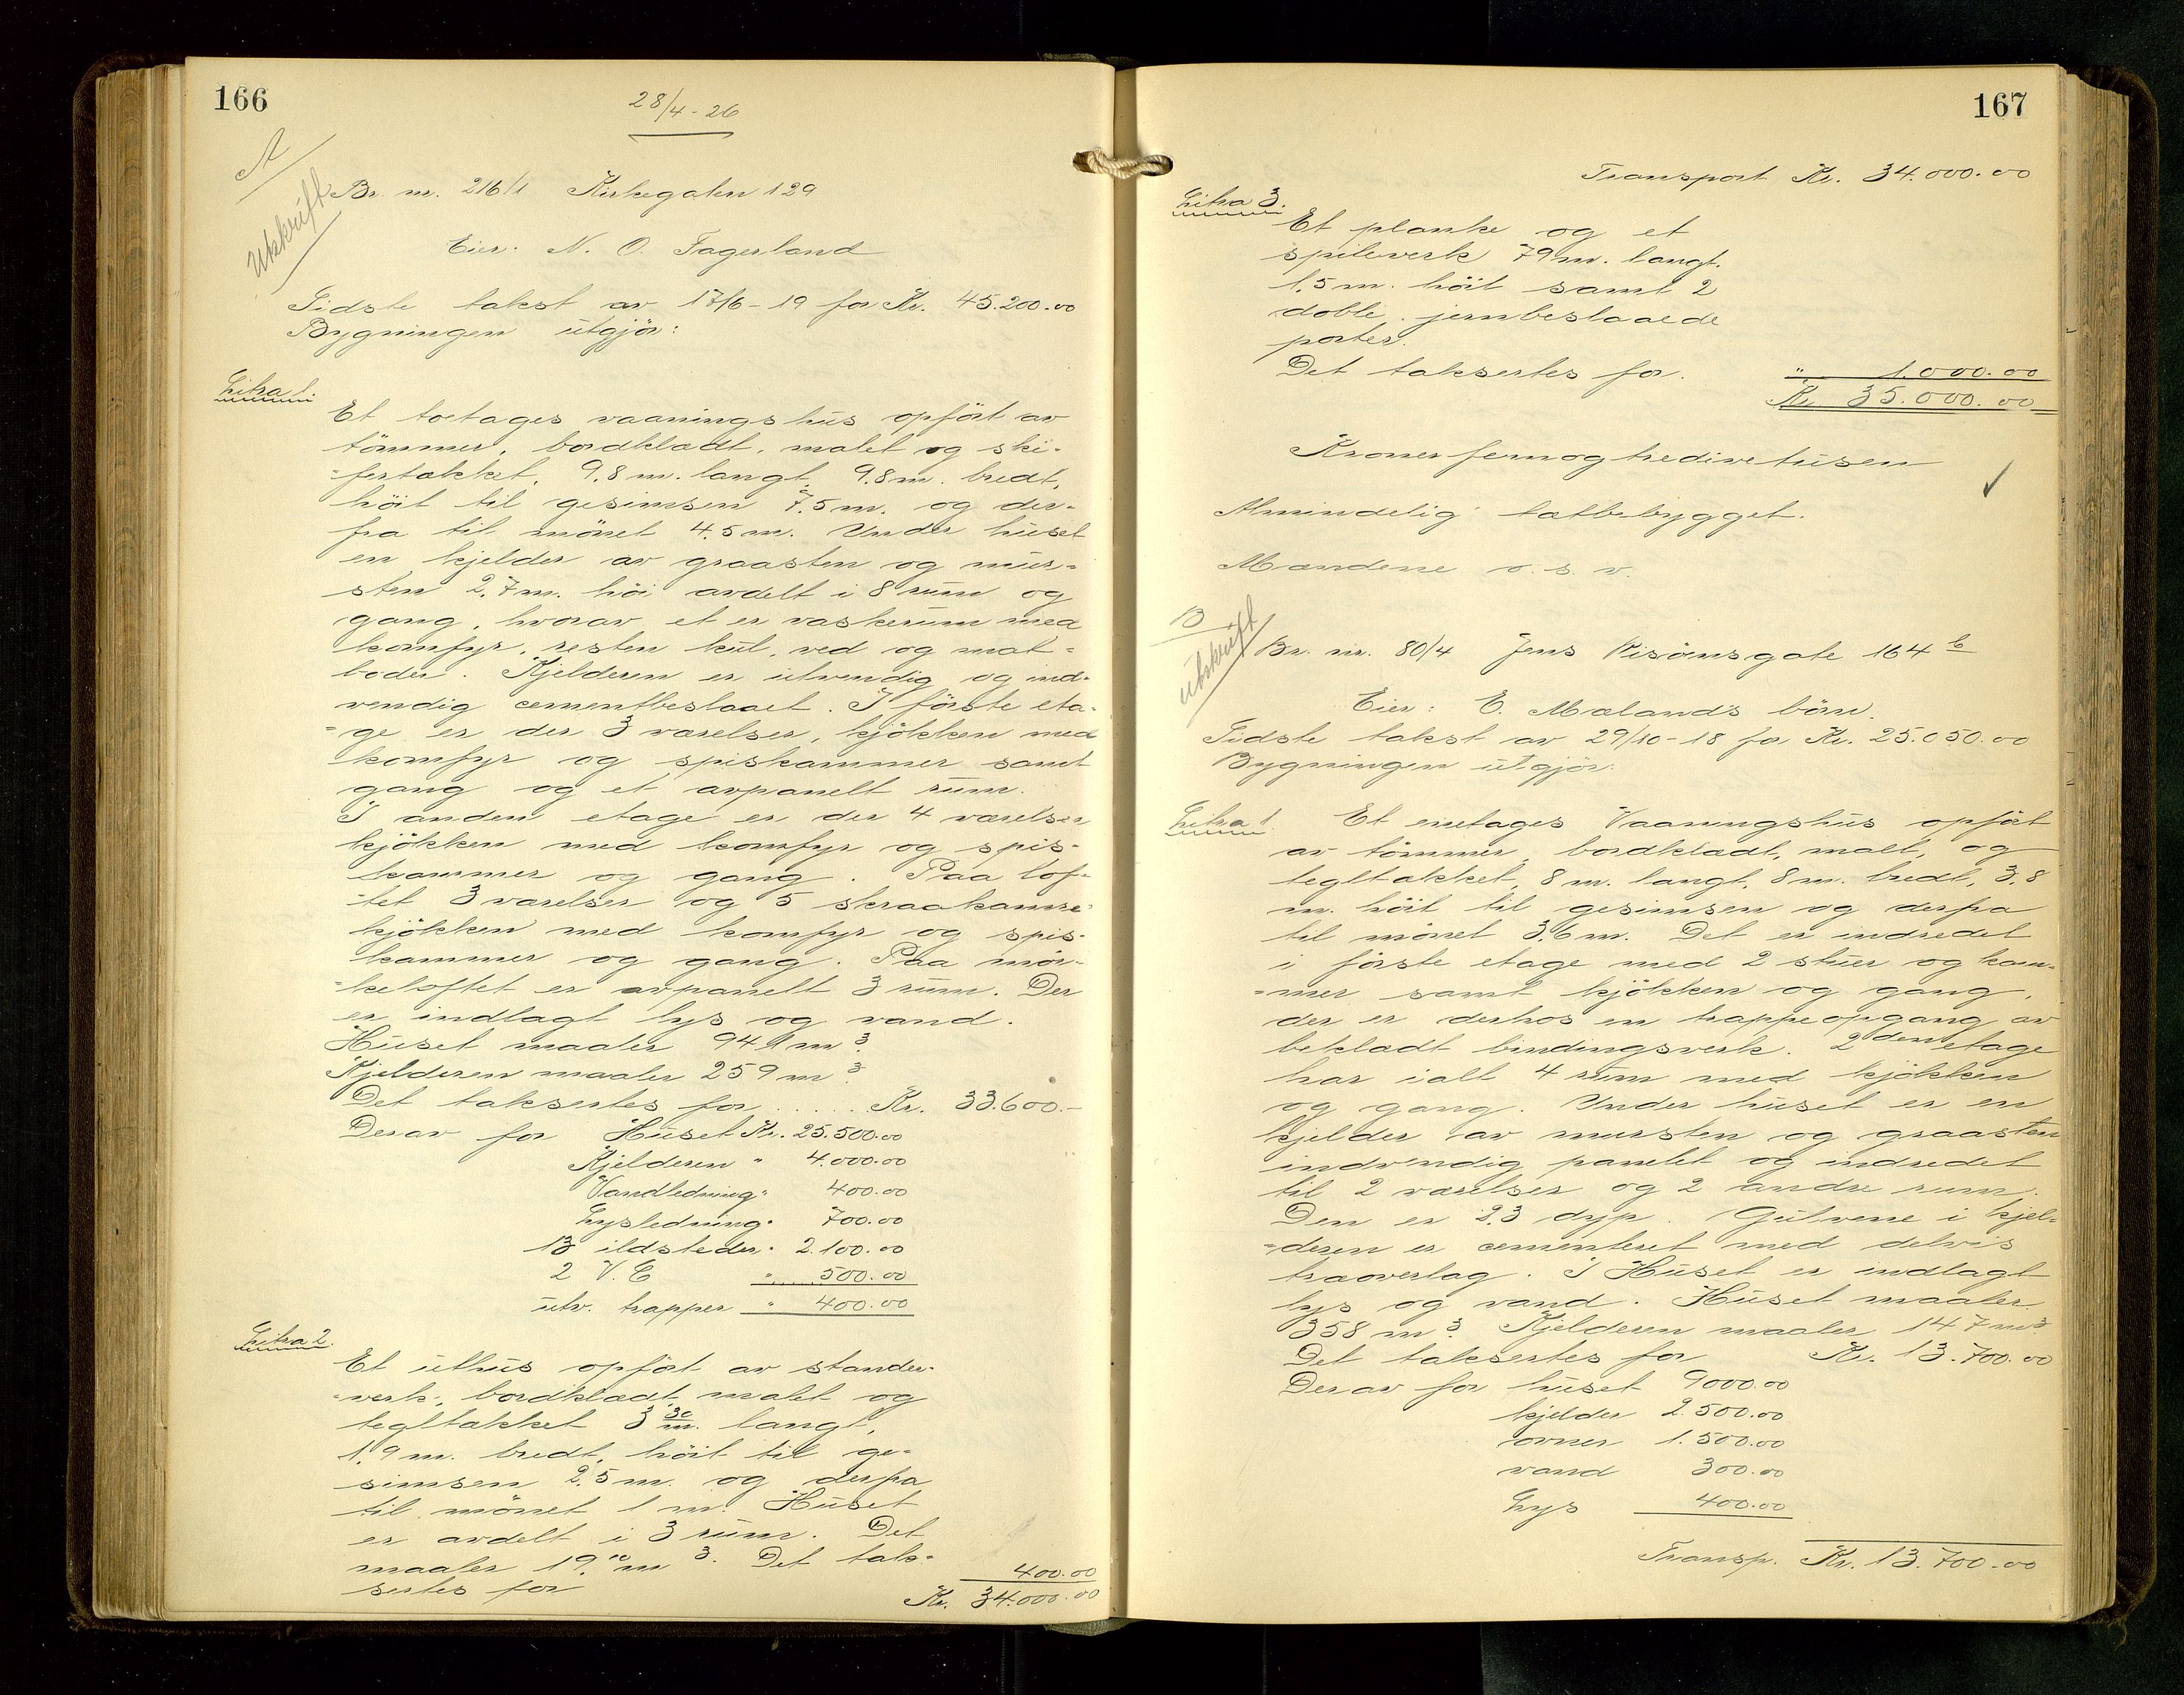 166
28/4-26
A
Utskrift
Br. nr. 216/1 Kirkegaten 129
Eier: N. O. Fagerland
Sidste takst av 17/6-19 for Kr. 45.200.00
Bygningen utgjör:
Litra 1.
Et toetages vaaningshus opfört av
tömmer, bordklædt, malet og ski-
=fertækket, 9,8 m. langt, 9.8 m. bredt,
höit til gesimsen 7.5 m. og der-
fra til mönet 4.5 m. Under huset
en kjelder av graasten og mur-
sten 2.7 m. höi avdelt i 8 rum og
gang, hvorav et er vaskerum med
komfyr, resten kul, ved og mat-
boder. Kjelderen er utvendig og ind-
vendig cementbeslaaet. I förste eta-
=ge er der 3 værelser, kjökken med
komfyr og spiskammer samt
gang og et avpanelt rum.
I anden etage er der 4 værelser
kjökken med komfyr og spis-
kammer og gang. Paa lof-
=tet 3 værelser og 5 skraakamre
kjökken med komfyr og spis-
kammer og gang. Paa mör-
=keloftet er avpanelt 3 rum. Der
er indlagt lys og vand.
Huset maaler 941 m³.
Kjelderen maaler 259 m³.
Det taksertes for ..... Kr. 33.600.-
Derav for Huset Kr. 25.500.00
Kjelderen " 4.000.00
Vandledning " 400.00
Lysledning " 700.00
13 ildsteder " 2.100.00
2 V.C " 500.00
utv. trapper " 400.00
Litra 2.
Et uthus opfört av stander-
=verk, bordklædt, malet og
tegltækket 3,30 m. langt,
1,9 m. bredt, höit til ge-
simsen 2.5 m. og derfra
til mönet 1 m. Huset
er avdelt i 3 rum. Det
maaler 19.10 m³. Det tak-
sertes for 400.00
Kr. 34.000.00
167
Transport Kr. 34.000.00
Litra 3.
Et planke og et
spileverk 79 m. langt.
1,5 m. höit samt 2
doble jernbeslaaede
porter.
Det taksertes for. " 1.000.00
Kr. 35.000.00
Kroner femogtredivetusen
Almindelig tætbebygget.
Mændene o. s. v.
B
utskrift
Br. nr. 80/4 Jens Risöensgate 164 b
Eier: E. Mælands börn.
Sidste takst av 29/10-18 for Kr. 25.050.00
Bygningen utgjör:
Litra 1.
Et enetages Vaaningshus opfört
av tömmer, bordklædt, malt, og
tegltækket, 8 m. langt, 8 m. bredt, 3,8
m. höit til gesimsen og derfra
til mönet 3.6 m. Det er indredet
i förste etage med 2 stuer og kam-
=mer samt kjökken og gang,
der er derhos en trappeopgang av
beklædt bindingsverk. 2den etage
har ialt 4 rum med kjökken
og gang. Under huset er en
kjelder av mursten og graasten
indvendig panelet og indredet
til 2 værelser og 2 andre rum.
Den er 2.3 dyp. Gulvene i kjel-
=deren er cementeret med delvis
træoverlag. I Huset er indlagt
lys og vand. Huset maaler
358 m³. Kjelderen maaler 147 m³
Det taksertes for Kr. 13.700.00
Derav for huset 9000.00
kjelder 2.500.00
ovner 1.500.00
vand 300.00
Lys 400.00
Transp. Kr. 13.700.00